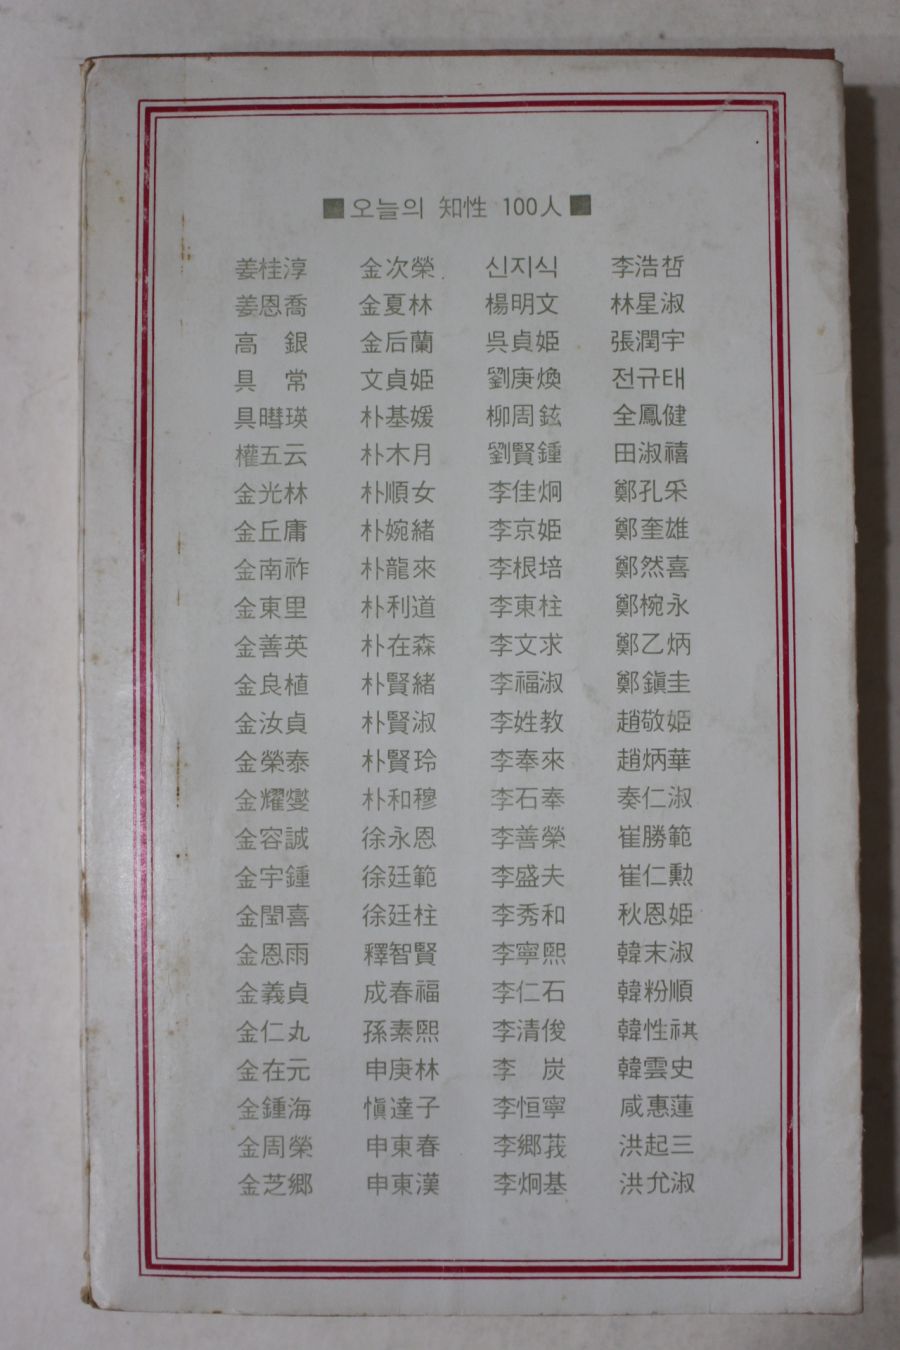 ■오늘의 知性 100人■
姜桂淳 金次榮 신지식 李浩哲
姜恩喬 金夏林 楊明文 林星淑
高 銀 金后蘭 吳貞姬 張潤宇
具 常 文貞姬 劉庚煥 전규태
具暳瑛 朴基媛 柳周鉉 全鳳健
權五云 朴木月 劉賢鍾 田淑禧
金光林 朴順女 李佳炯 鄭孔采
金丘庸 朴婉緖 李京姬 鄭奎雄
金南祚 朴龍來 李根培 鄭然喜
金東里 朴利道 李東柱 鄭椀永
金善英 朴在森 李文求 鄭乙炳
金良植 朴賢緖 李福淑 鄭鎭圭
金汝貞 朴賢淑 李姓敎 趙敬姬
金榮泰 朴賢玲 李奉來 趙炳華
金耀燮 朴和穆 李石奉 秦仁淑
金容誠 徐永恩 李善榮 崔勝範
金宇鍾 徐廷範 李盛夫 崔仁勳
金閏喜 徐廷柱 李秀和 秋恩姬
金恩雨 釋智賢 李寧熙 韓末淑
金義貞 成春福 李仁石 韓粉順
金仁丸 孫素熙 李清俊 韓性祺
金在元 申庚林 李 炭 韓雲史
金鍾海 愼達子 李恒寧 咸惠蓮
金周榮 申東春 李鄕莪 洪起三
金芝鄕 申東漢 李炯基 洪允淑